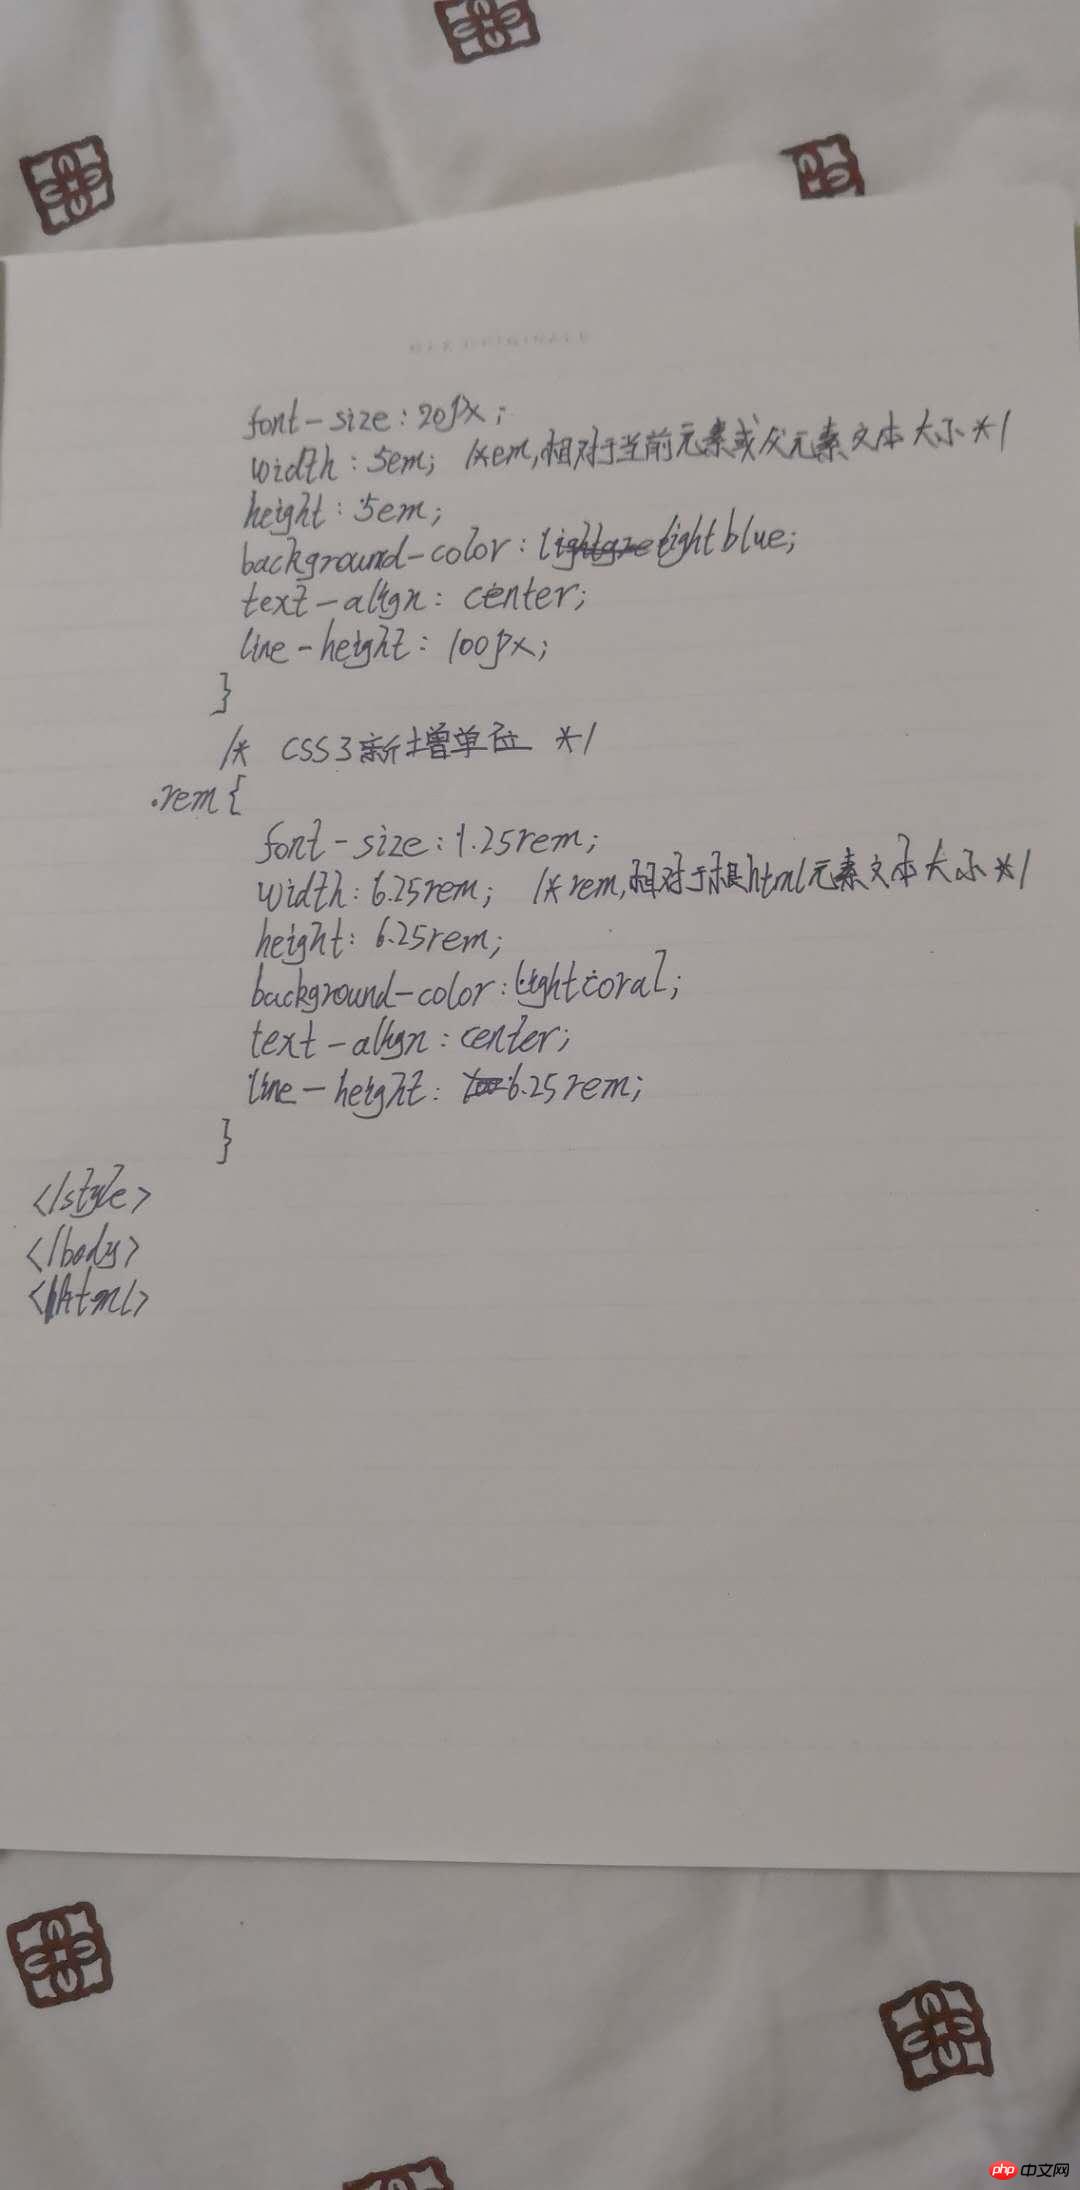 font-size: 20px;
width: 5em; /*em,相对于当前元素或父元素文本大小*/
height: 5em;
background-color: lightblue;
text-align: center;
line-height: 100px;
}
/* CSS3新增单位 */
.rem{
font-size: 1.25rem;
width: 6.25rem; /*rem,相对于根html元素文本大小*/
height: 6.25rem;
background-color: lightcoral;
text-align: center;
line-height: 6.25rem;
}
</style>
</body>
</html>
php 中文网